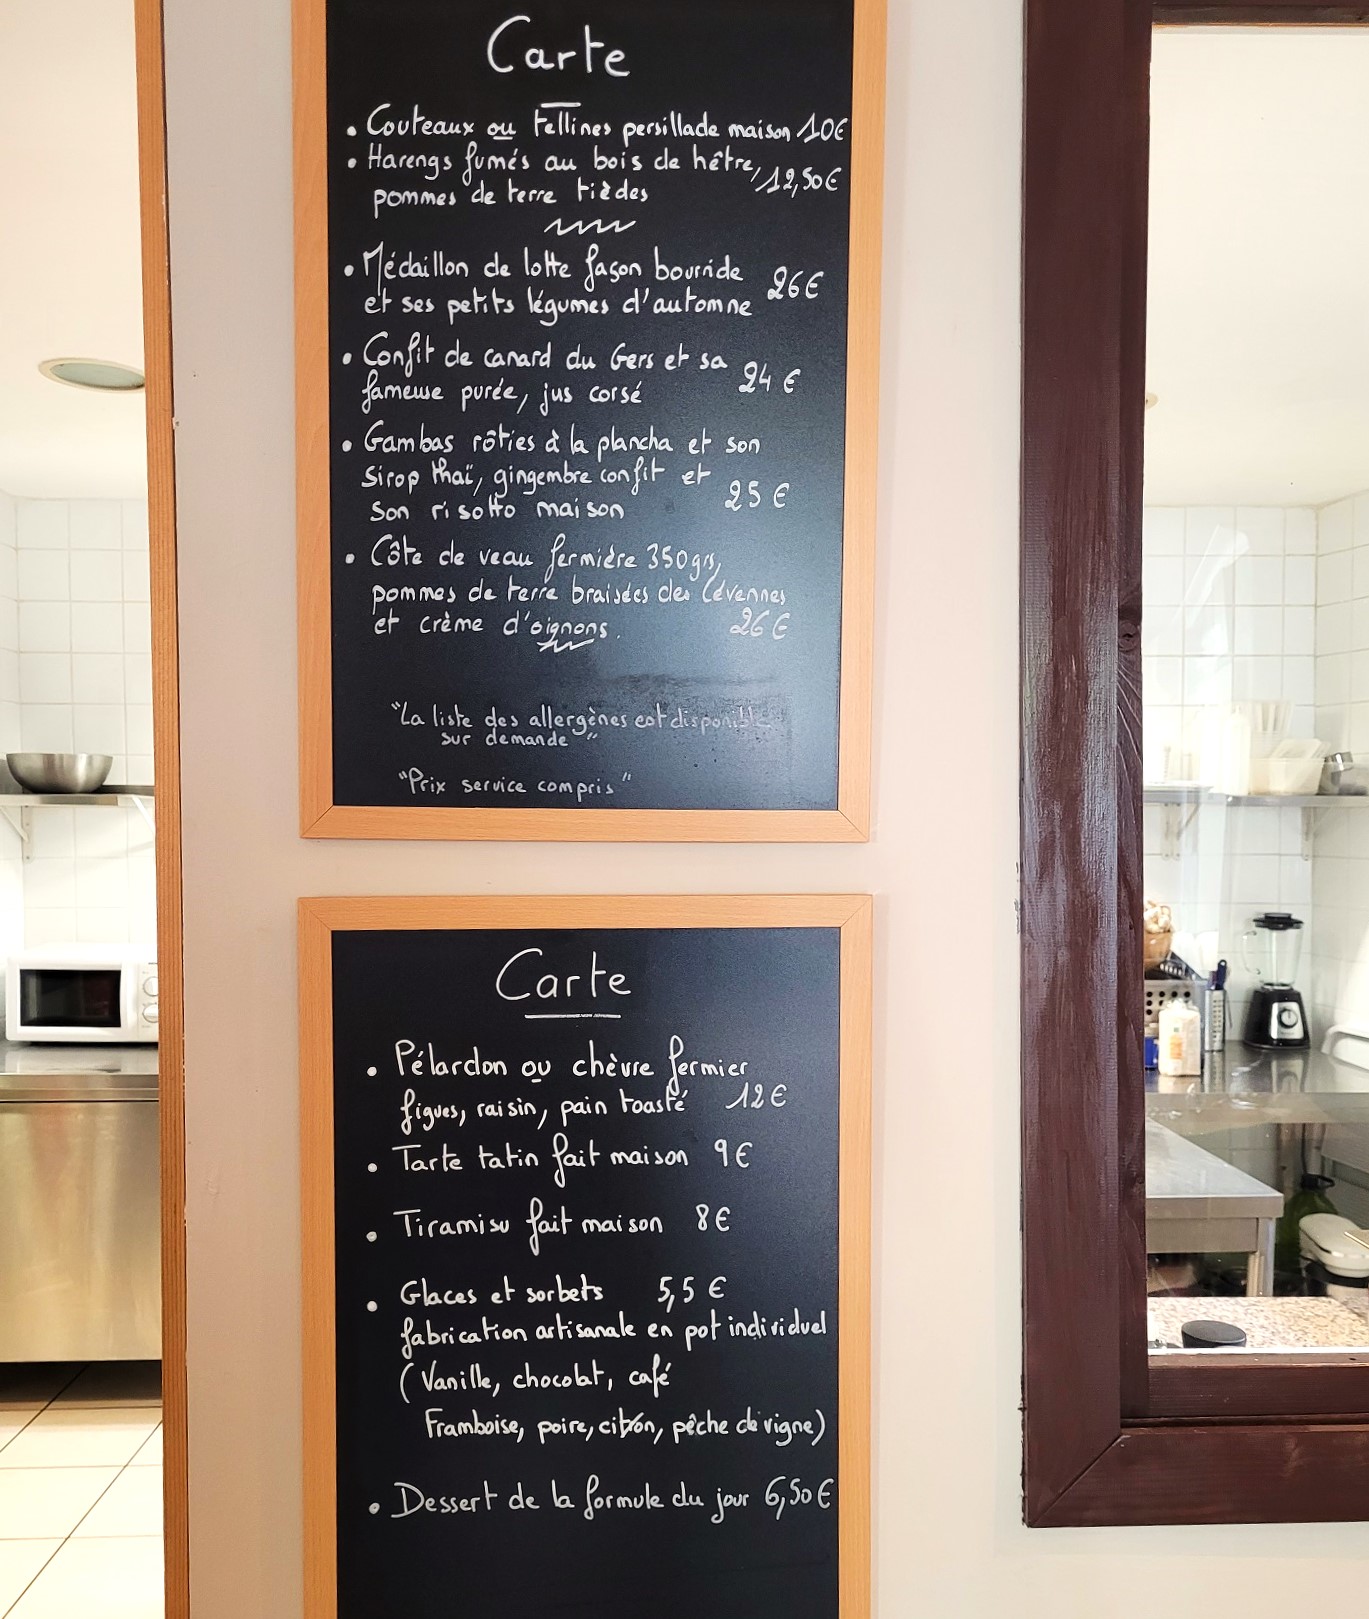 Carte
• Couteaux ou Tellines persillade maison 10€
• Harengs fumés au bois de hêtre,
pommes de terre tièdes 12,50€
• Médaillon de lotte façon bourride
et ses petits légumes d'automne 26€
• Confit de canard du Gers et sa
fameuse purée, jus corsé 24 €
• Gambas rôties à la plancha et son
sirop thaï, gingembre confit et
son risotto maison 25 €
• Côte de veau fermière 350grs,
pommes de terre braisées des Cévennes
et crème d'oignons. 26€
"La liste des allergènes est disponible
sur demande"
"Prix service compris"
Carte
• Pélardon ou chèvre fermier
figues, raisin, pain toasté 12€
• Tarte tatin fait maison 9€
• Tiramisu fait maison 8€
• Glaces et sorbets 5,5 €
fabrication artisanale en pot individuel
(Vanille, chocolat, café
Framboise, poire, citron, pêche de vigne)
• Dessert de la formule du jour 6,50€